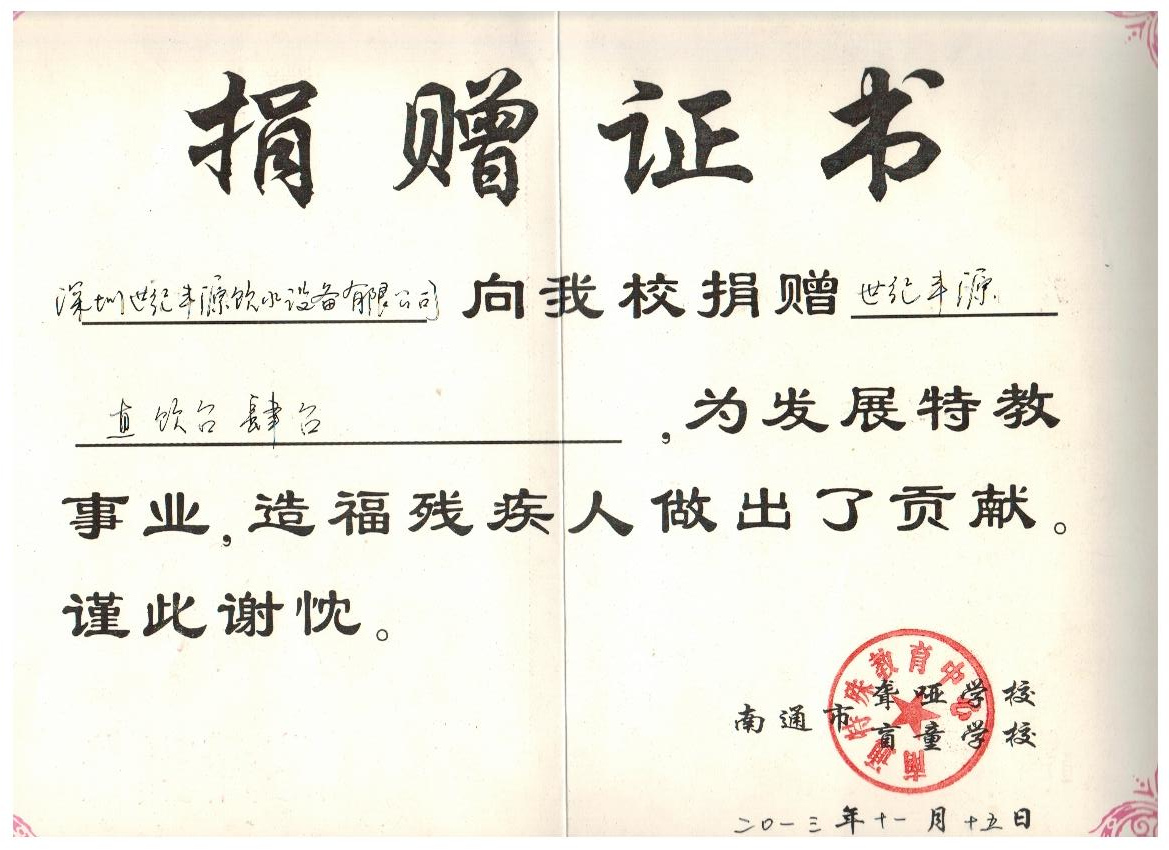 捐赠证书
深圳世纪丰源饮水设备有限公司 向我校捐赠 世纪丰源
直饮台肆台 ,为发展特教
事业,造福残疾人做出了贡献。
谨此谢忱。
南通特殊教育中心
南通市 聋哑学校
盲童学校
二〇一三年十一月十五日